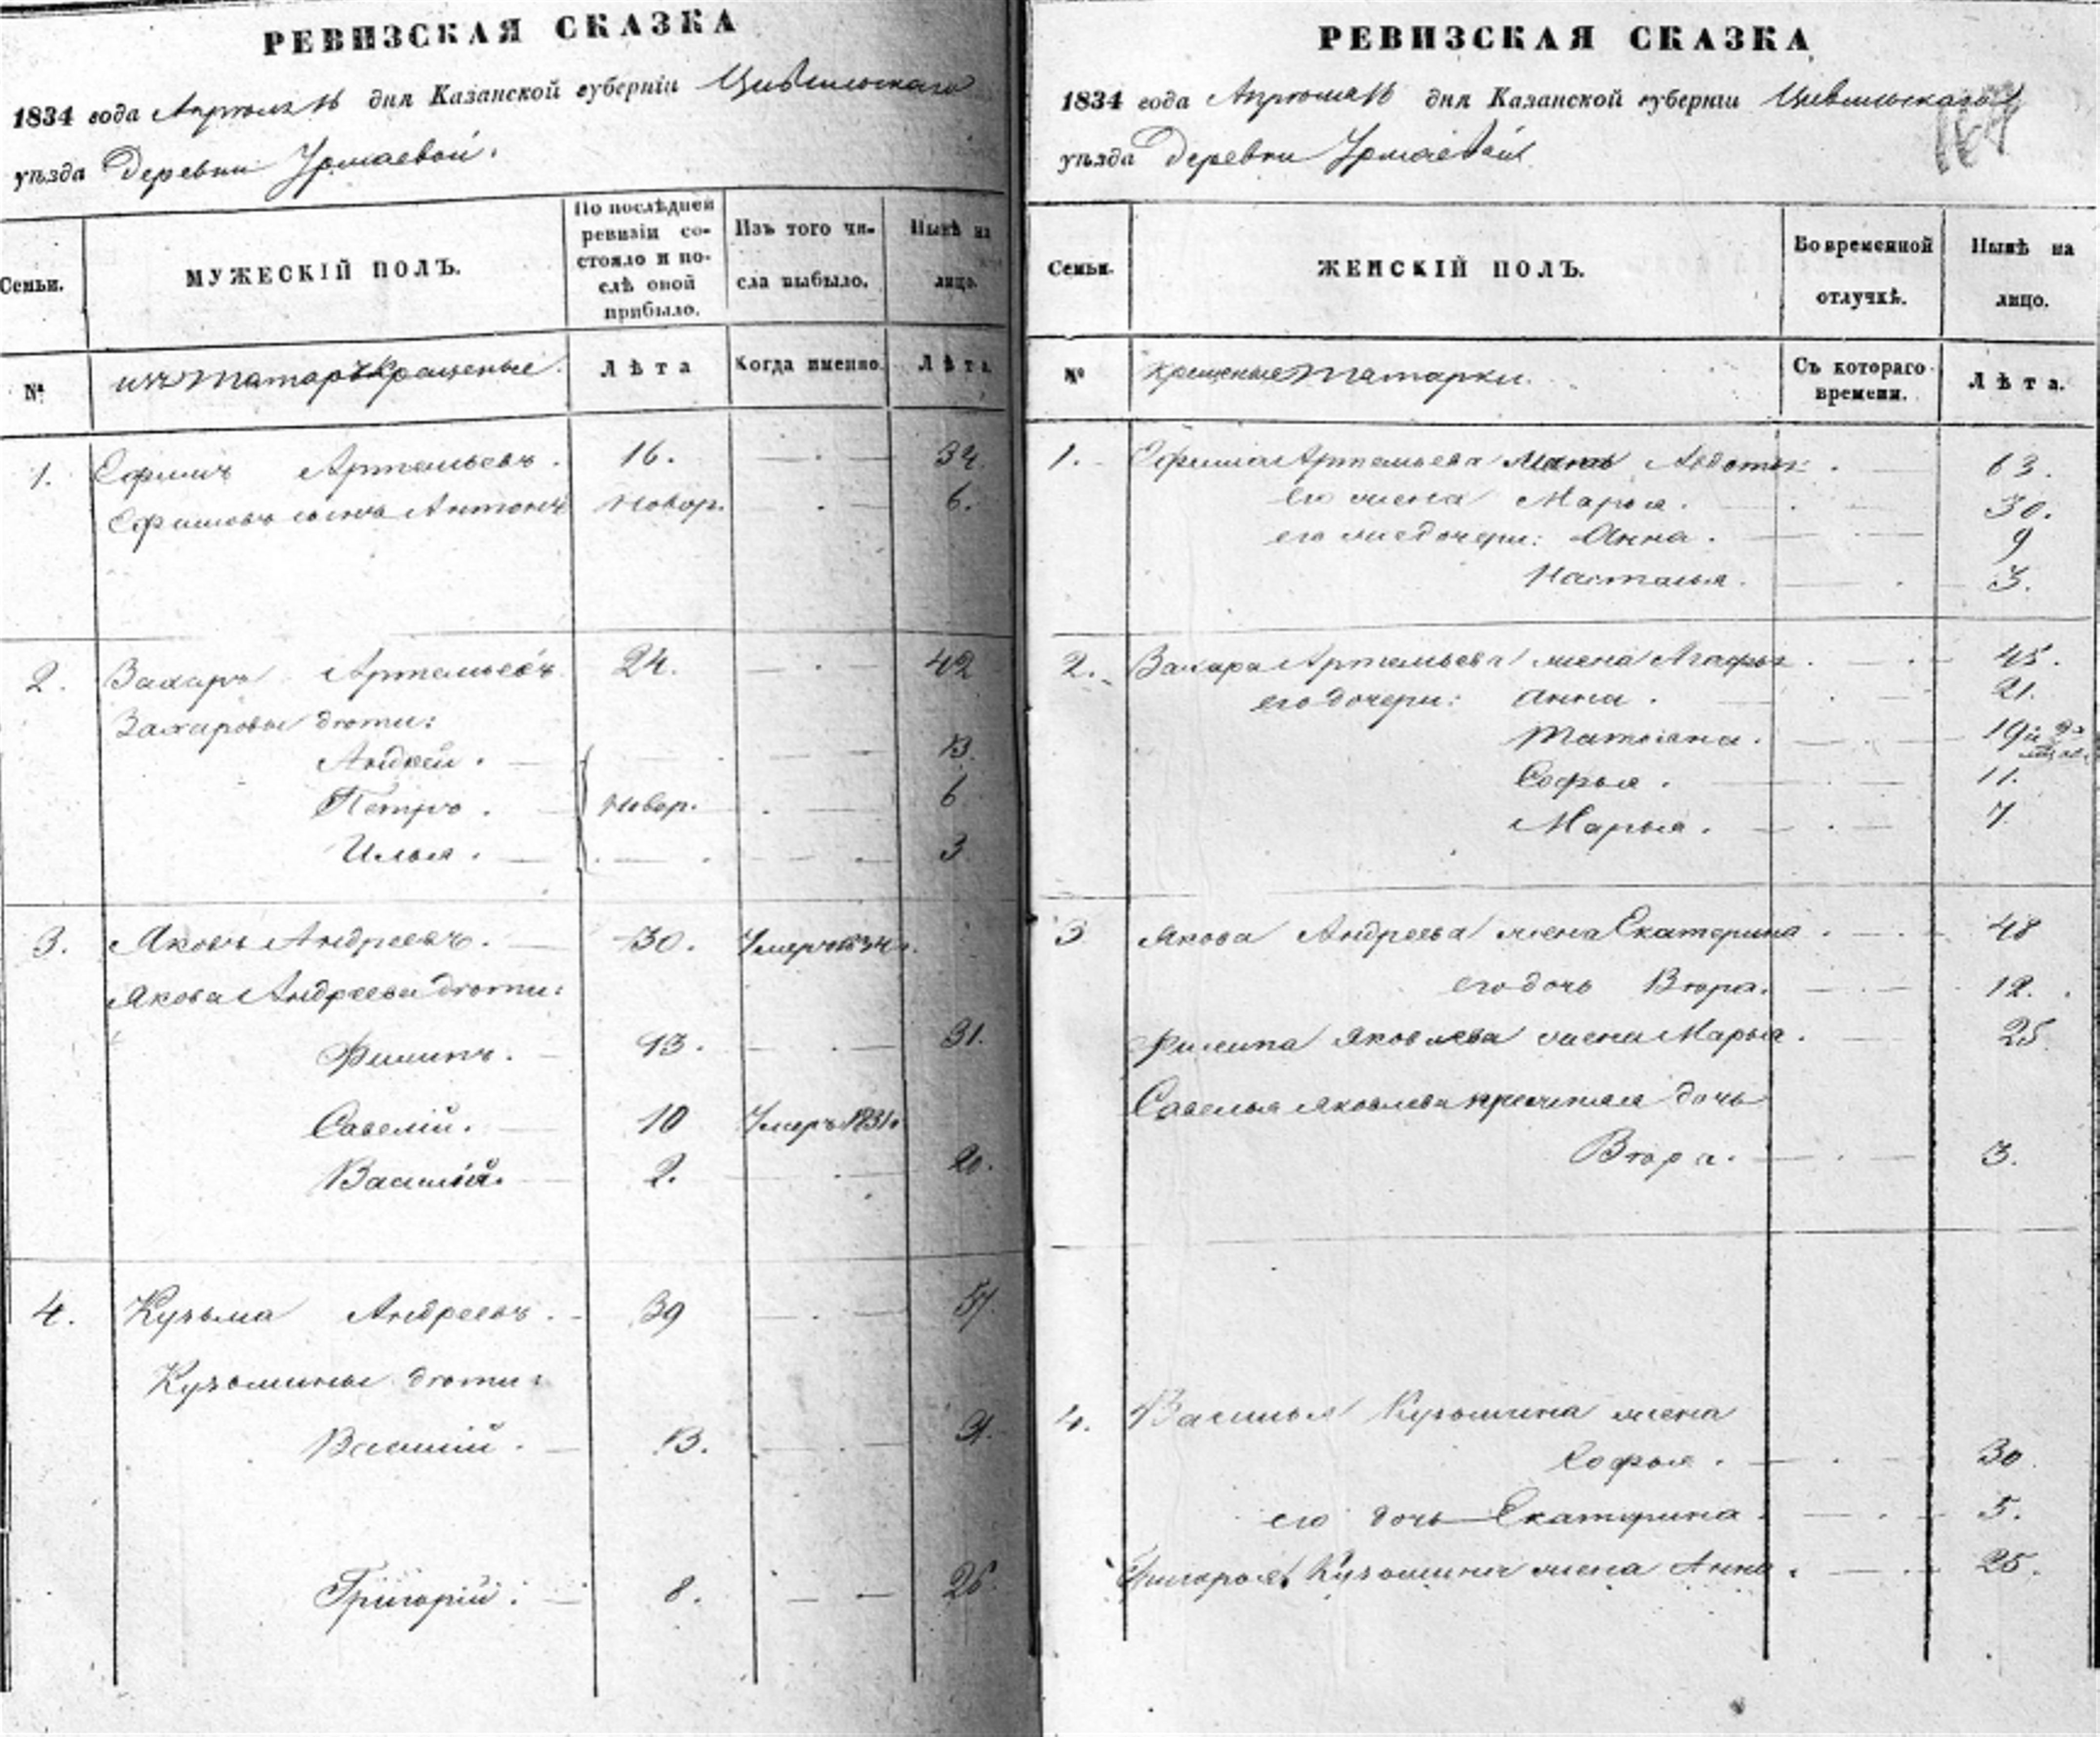 РЕВИЗСКАЯ СКАЗКА
1834 года Апрѣля 16 дня Казанской губерніи Цивильскаго
уѣзда Деревни Урмаевой.
Семьи.
МУЖЕСКІЙ ПОЛЪ.
По послѣдней
ревизіи со-
стояло и по-
слѣ оной
прибыло.
Изъ того чи-
сла выбыло.
Нынѣ на
лицо.
№
изъ татаръ крещеные
Лѣта
Когда именно.
Лѣта.
1. Ефимъ Артемьевъ. 16. 34.
Ефимовъ сынъ Антонъ новор. 6.
2. Захаръ Артемьевъ 24. 42
Захаровы дѣти:
Андрей. 13.
Петръ. новор. 6
Илья. 3
3. Яковъ Андреевъ. 30. Умеръ
Якова Андреева дѣти:
Филипъ. 13. 31.
Савелій. 10 Умеръ 1831.
Василій. 2. 20.
4. Кузьма Андреевъ. 39 57.
Кузьмины дѣти:
Василій. 13. 31.
Григорій. 8. 26.
РЕВИЗСКАЯ СКАЗКА
1834 года Апрѣля 16 дня Казанской губерніи Цивильскаго
уѣзда Деревни Урмаевой
Семьи.
ЖЕНСКІЙ ПОЛЪ.
Во временной
отлучкѣ.
Нынѣ на
лицо.
№
крещеные татарки.
Съ котораго
времени.
Лѣта.
1. Ефима Артемьева мать Авдотья. 63.
его жена Марья. 30.
его же дочери: Анна. 9
Настасья. 3.
2. Захара Артемьева жена Агафья. 45.
его дочери: Анна. 21.
Татьяна. 19
Софья. 11.
Марья. 7
3 Якова Андреева жена Екатерина. 48
его дочь Вѣра. 12.
Филипа Яковлева жена Марья. 25
Савелья Яковлева дочь
Вѣра. 3.
4. Василья Кузьмина жена
Софья. 30
его дочь Екатерина. 5.
Григорья Кузьмина жена Анна. 25.